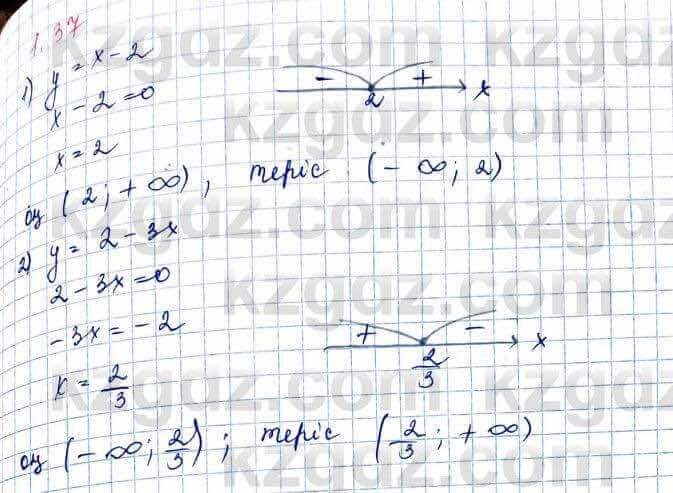 1.37
1) y = x - 2
x - 2 = 0
- + x
2
x = 2
оң (2; +∞), теріс (-∞; 2)
2) y = 2 - 3x
2 - 3x = 0
-3x = -2
+ - x
2/3
x = 2/3
оң (-∞; 2/3); теріс (2/3; +∞)
kzgdz.com